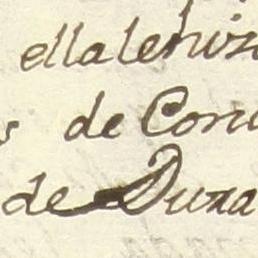 ella le hiz
s de Con
de Dura